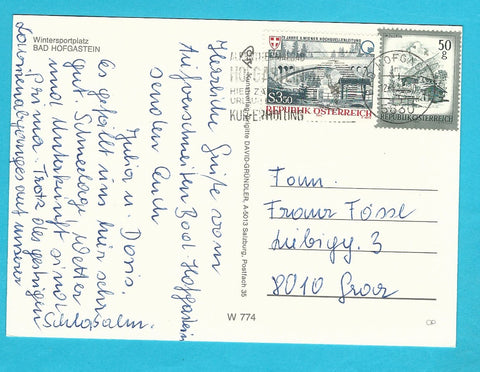 Wintersportplatz
BAD HOFGASTEIN
Herzliche Grüße vom
tiefverschneiten Bad Hofgastein
senden Euch
Julia u. Doris.
Es gefällt uns hier sehr
gut. Schneelage, Wetter
und Unterkunft sind
Prima. Trotz des gestrigen
auf unserer
Schloßalm.
Kunstverlag Brigitte DAVID-GRÜNDLER, A-5013 Salzburg, Postfach 35
W 774
75 JAHRE II. WIENER HOCHQUELLENLEITUNG
S3.50
REPUBLIK ÖSTERREICH
50
g
REPUBLIK ÖSTERREICH
Fam.
Franz Fössl
Liebigg. 3
8010 Graz